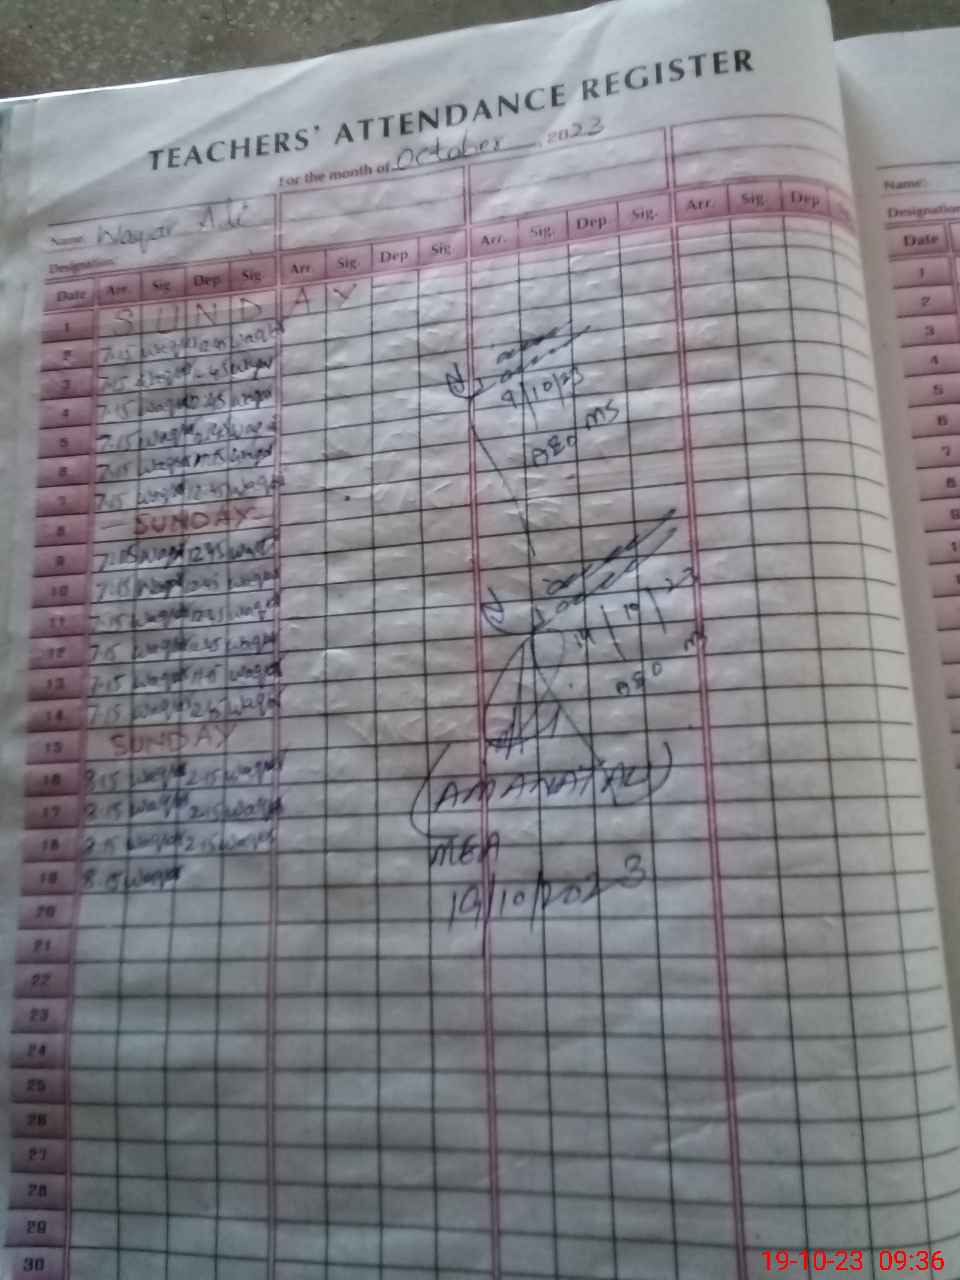 TEACHERS' ATTENDANCE REGISTER
For the month of October 2023
Name: Waqar Ali
Name:
Designation:
Designation
Date Arr. Sig Dep. Sig Arr. Sig. Dep Sig. Arr. Sig. Dep Sig. Arr. Sig. Dep
Date
1 SUNDAY
2 7.15 waqar 12.45 waqar
3 waqar
4 7.15 waqar 12.45 waqar
5 7.15 waqar
6 7.15 waqar waqar
7 7.15 waqar 12.45 waqar
8 SUNDAY
9 7.15 waqar 12.45 waqar
10 7.15 waqar 12.45 waqar
11 7.15 waqar 12.45 waqar
12 7.15 waqar 12.45 waqar
13 7.15 waqar waqar
14 7.15 waqar 12.45 waqar
15 SUNDAY
16 8.15 waqar 2.15 waqar
17 8.15 waqar 2.15 waqar
18 8.15 waqar 2.15 waqar
19 8.15 waqar
20
21
22
23
24
25
26
27
28
29
30
9/10/23
AEO MS
AEO
(AMANAT ALI)
MEA
19/10/2023
1
2
3
4
5
6
7
8
9
19-10-23 09:36